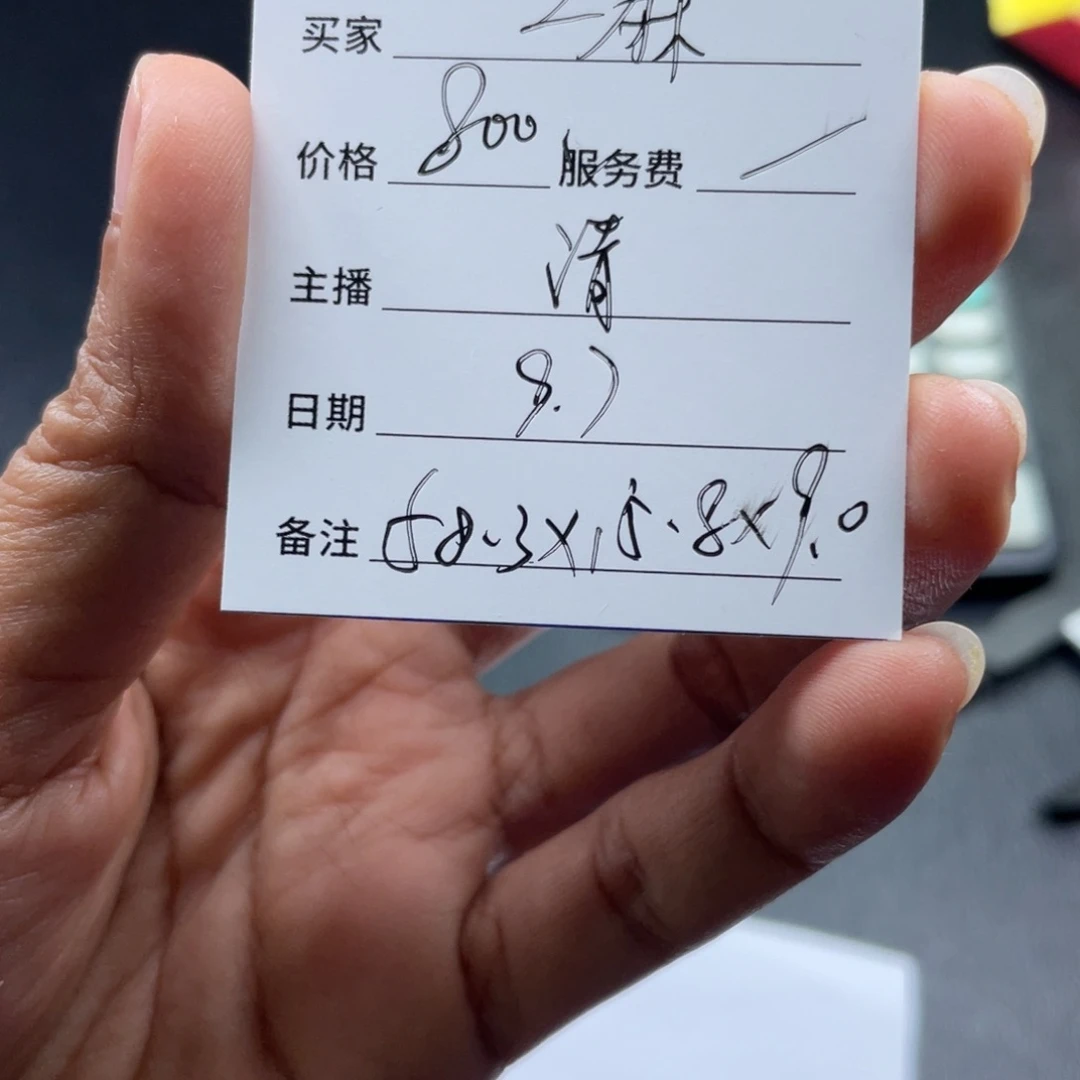 买家
价格 800 服务费 /
主播 清
日期 8.7
备注 58.3x15.8x9.0